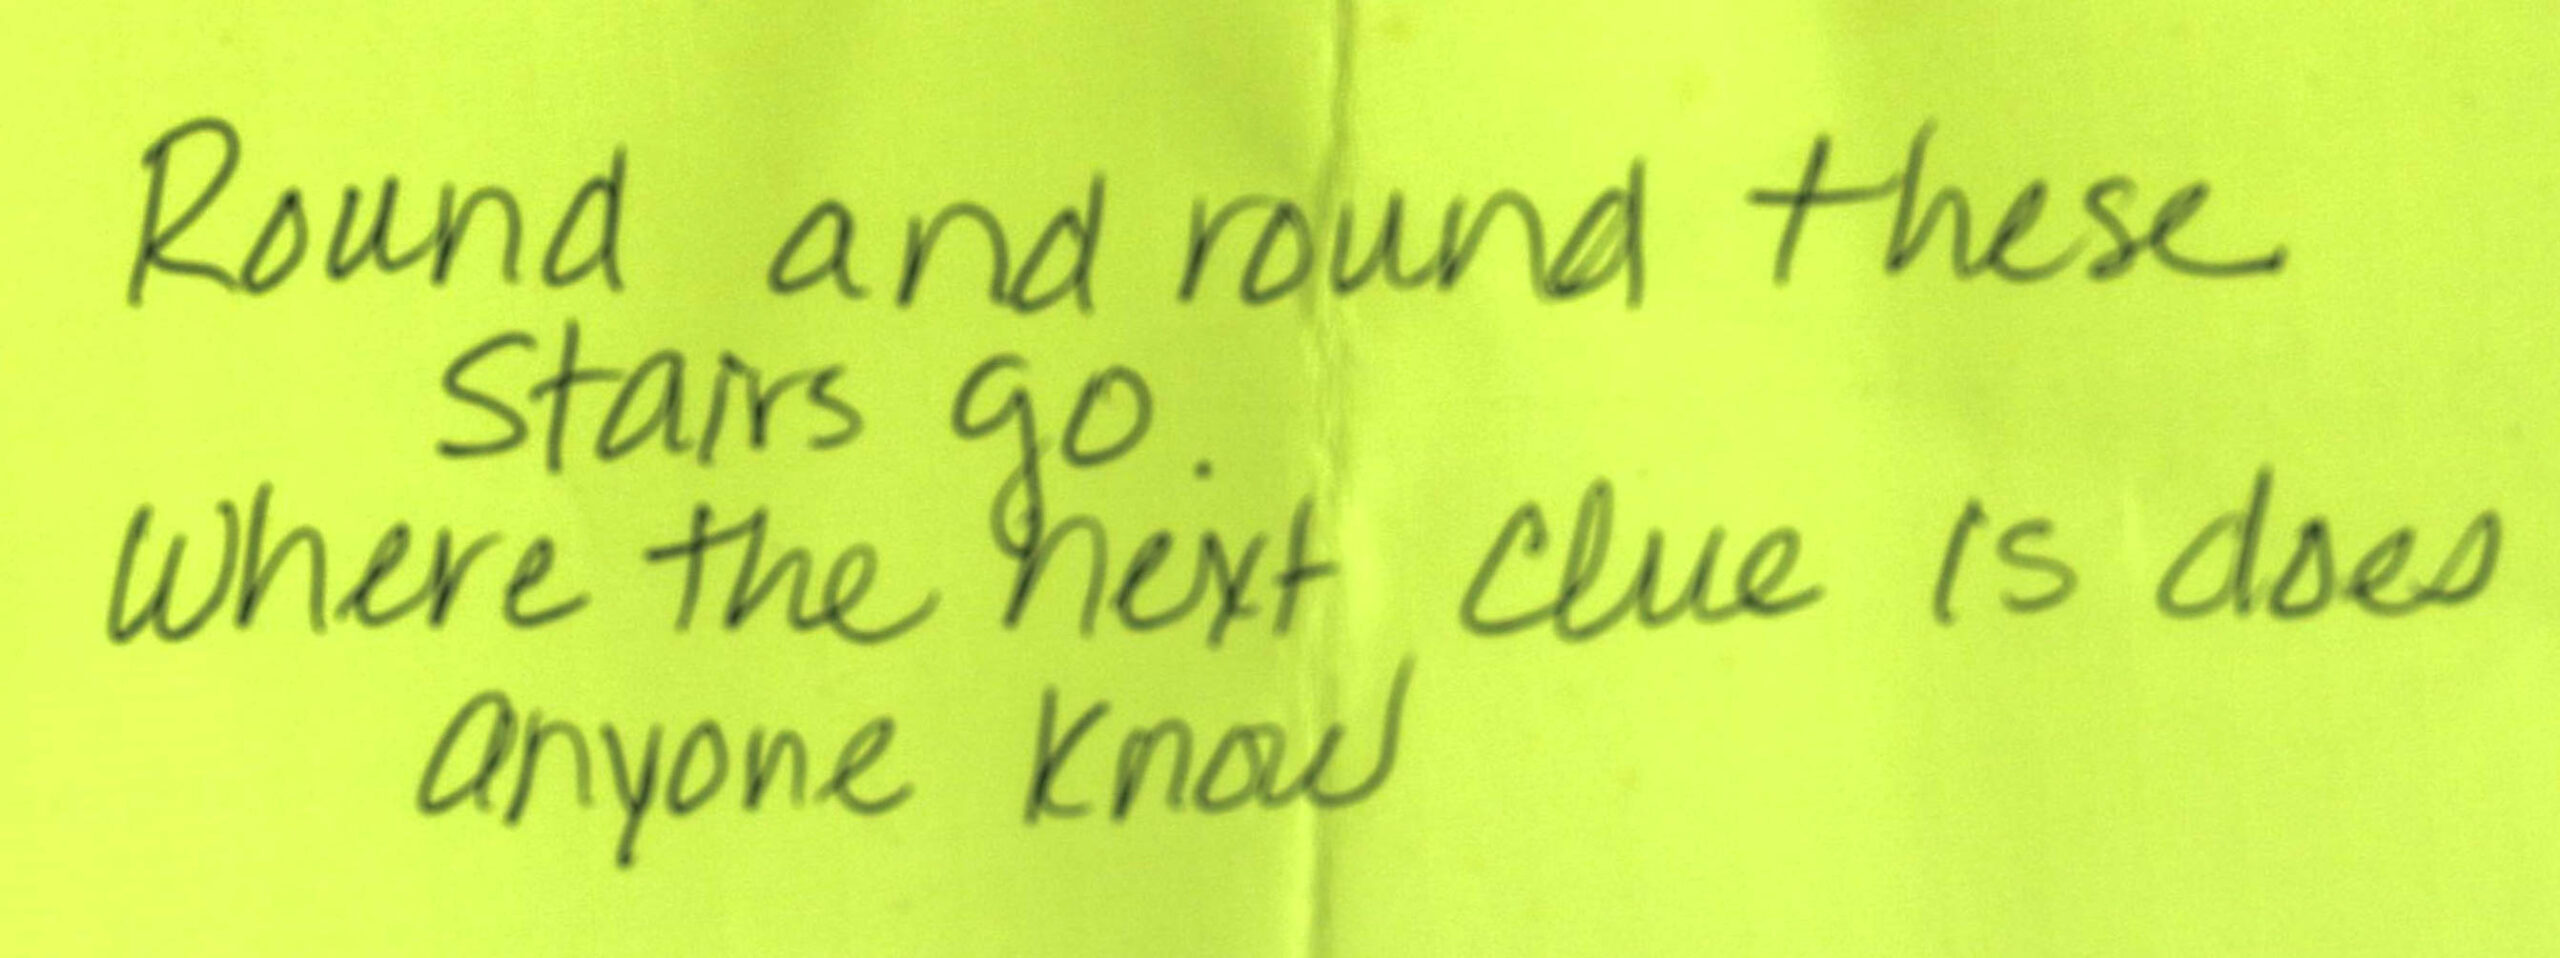 Round and round these
stairs go.
Where the next clue is does
anyone know